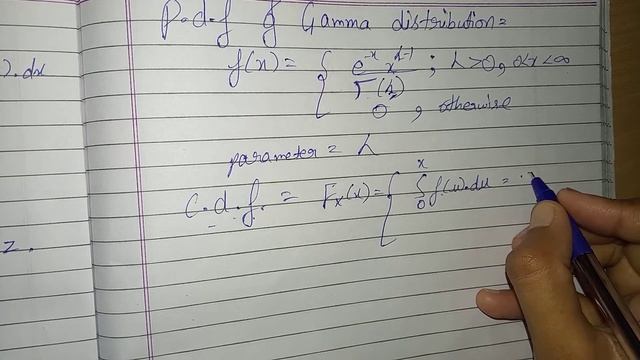 P.d.f of Gamma distribution =
). dx
f(x) = { e^-x x^λ-1 / Γ(λ) ; λ>0, 0<x<∞
0 , otherwise
parameter = λ
C.d.f. = F_X(x) = { ∫_0^x f(u).du =
2.